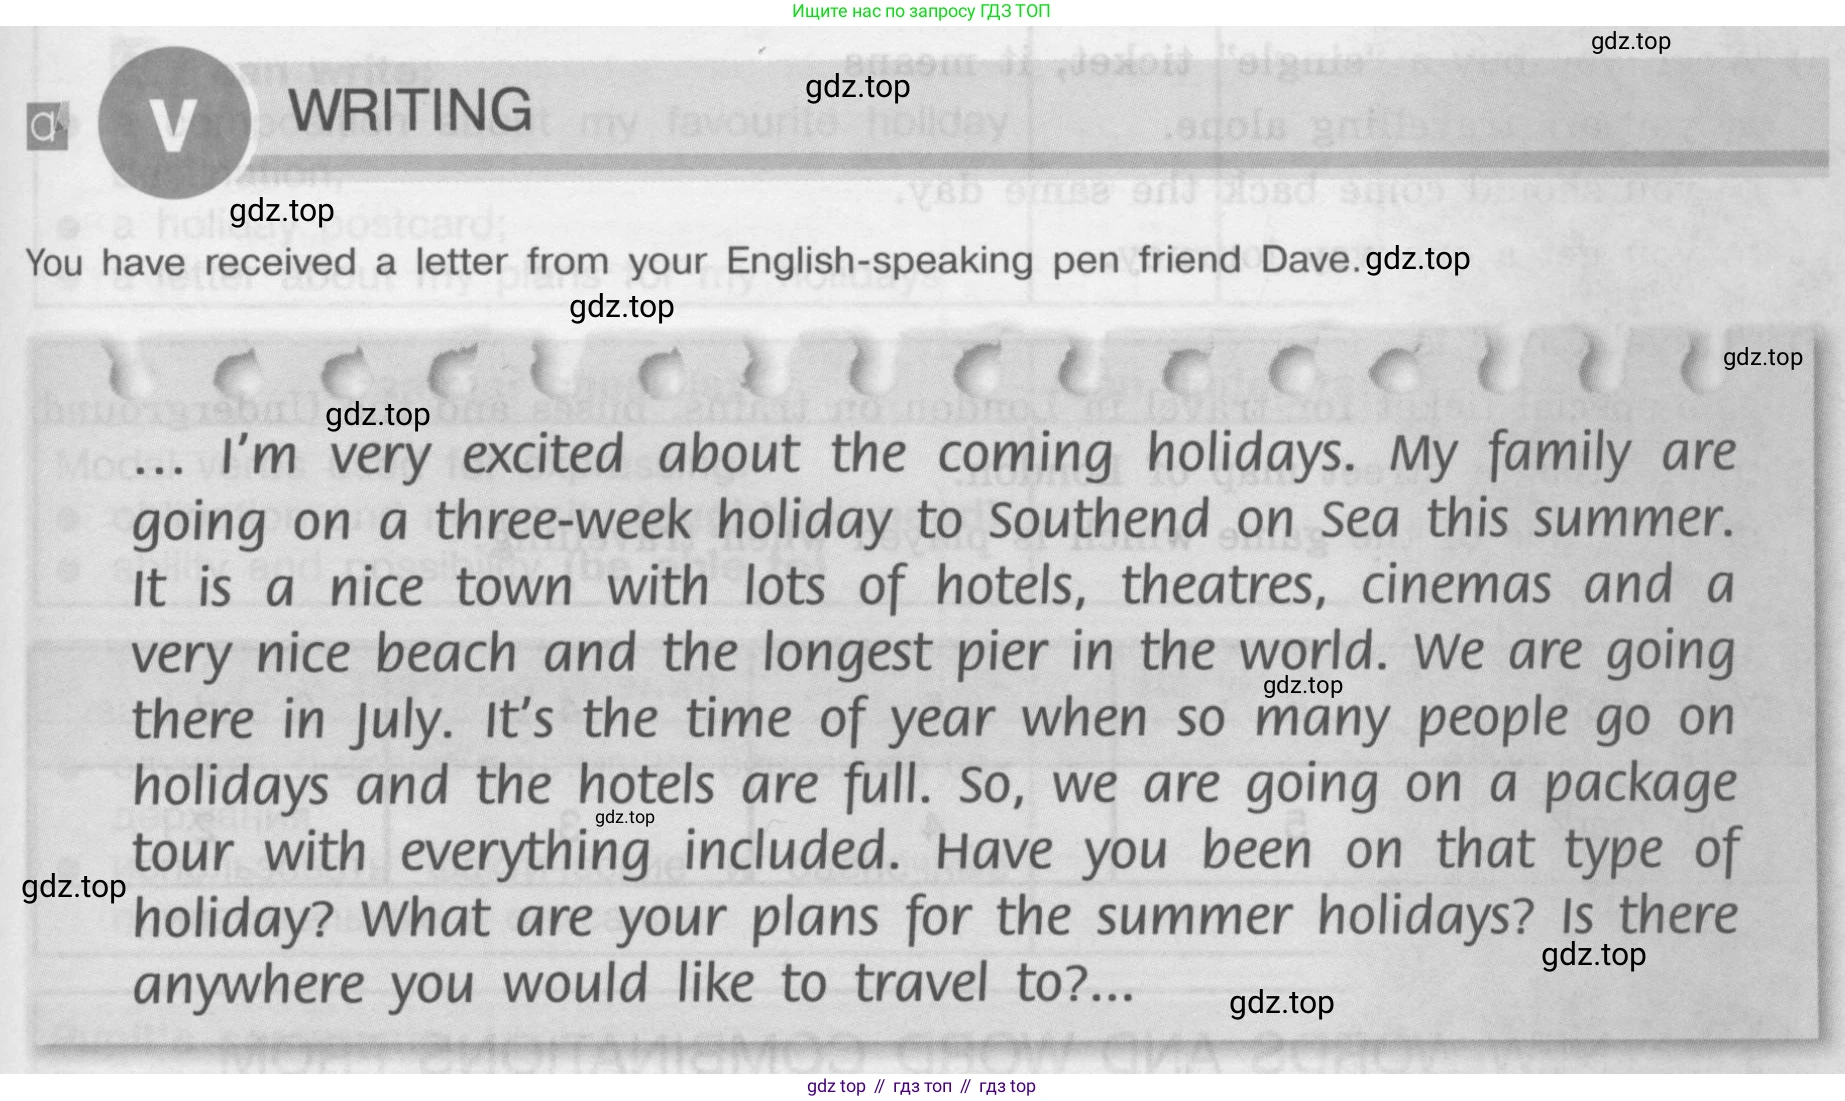 Ищите нас по запросу ГДЗ ТОП
gdz.top
a V WRITING
gdz.top
gdz.top
You have received a letter from your English-speaking pen friend Dave. gdz.top
gdz.top
gdz.top
gdz.top
... I'm very excited about the coming holidays. My family are
going on a three-week holiday to Southend on Sea this summer.
It is a nice town with lots of hotels, theatres, cinemas and a
very nice beach and the longest pier in the world. We are going
gdz.top
there in July. It's the time of year when so many people go on
holidays and the hotels are full. So, we are going on a package
gdz.top
tour with everything included. Have you been on that type of
gdz.top
holiday? What are your plans for the summer holidays? Is there
gdz.top
anywhere you would like to travel to?...
gdz.top
gdz top // гдз топ // гдз top